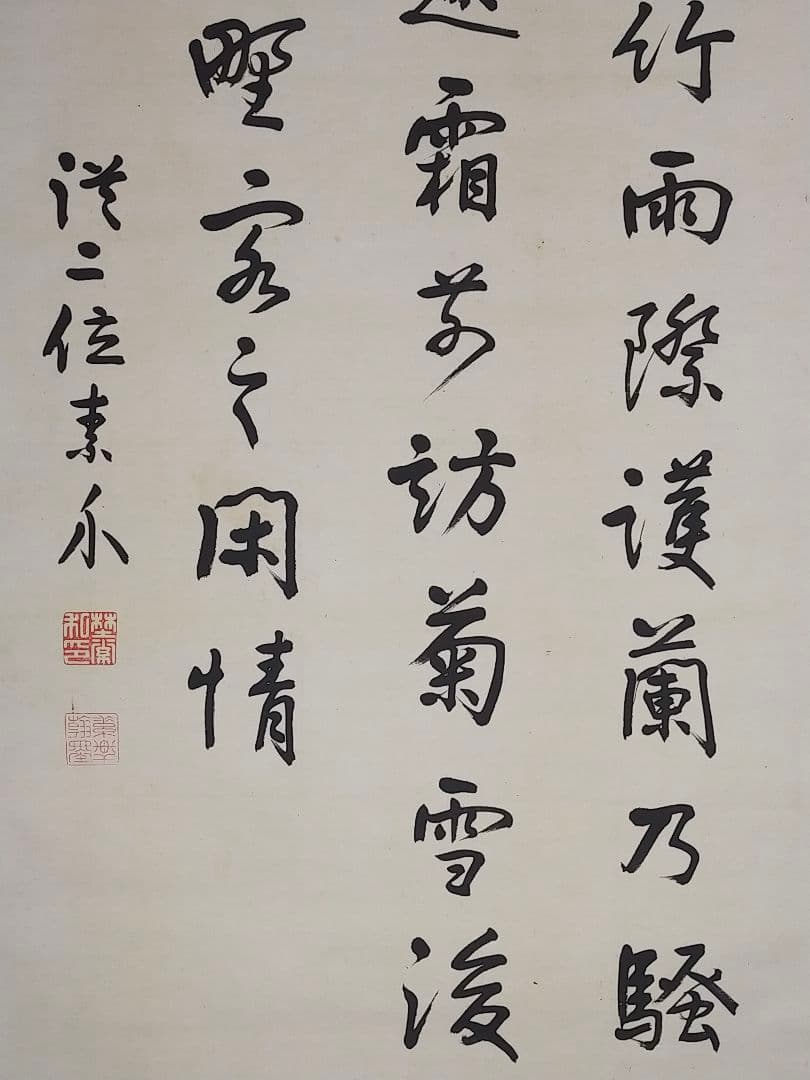 竹雨際護蘭乃騷
霜前訪菊雪後
野客之閑情
從二位素介